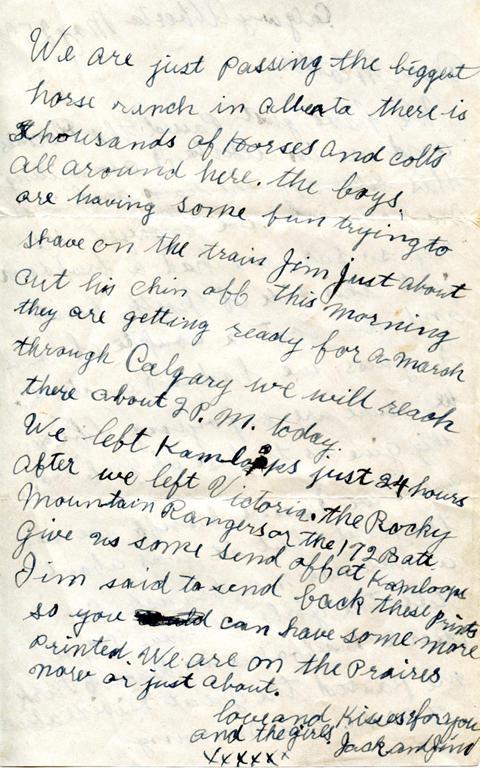 We are just passing the biggest
horse ranch in alberta there is
thousands of Horses and colts
all around here. the boys
are having some fun trying to
shave on the train Jim just about
cut his chin off this morning
they are getting ready for a march
through Calgary we will reach
there about 2 P.M. today.
We left Kamloops just 24 hours
after we left Victoria. the Rocky
Mountain Rangers or the 172 Batt
Give us some send off at Kamloops
Jim said to send back these prints
so you can have some more
printed. We are on the Prairies
now or just about.
love and Kisses for you
and the girls. Jack and Jim
xxxxxx